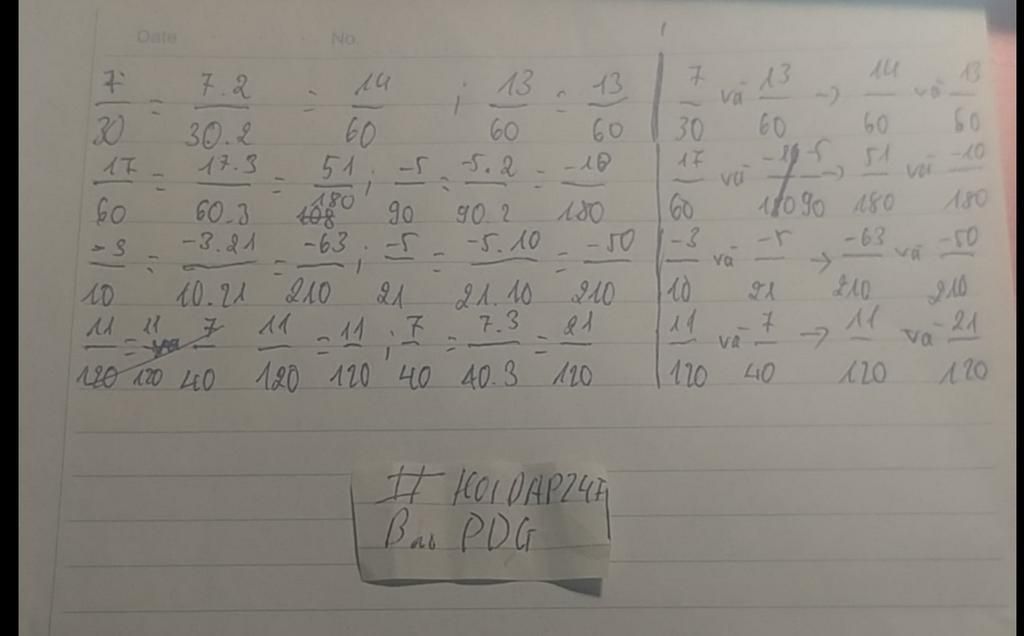 Date No.
7/30 = 7.2/30.2 = 14/60 ; 13/60 = 13/60 | 7/30 và 13/60 → 14/60 và 13/60
17/60 = 17.3/60.3 = 51/180 ; -5/90 = -5.2/90.2 = -10/180 | 17/60 và -5/90 → 51/180 và -10/180
-3/10 = -3.21/10.21 = -63/210 ; -5/21 = -5.10/21.10 = -50/210 | -3/10 và -5/21 → -63/210 và -50/210
11/120 = 11/120 ; 7/40 = 7.3/40.3 = 21/120 | 11/120 và 7/40 → 11/120 và 21/120
# HOIDAP247
PDG